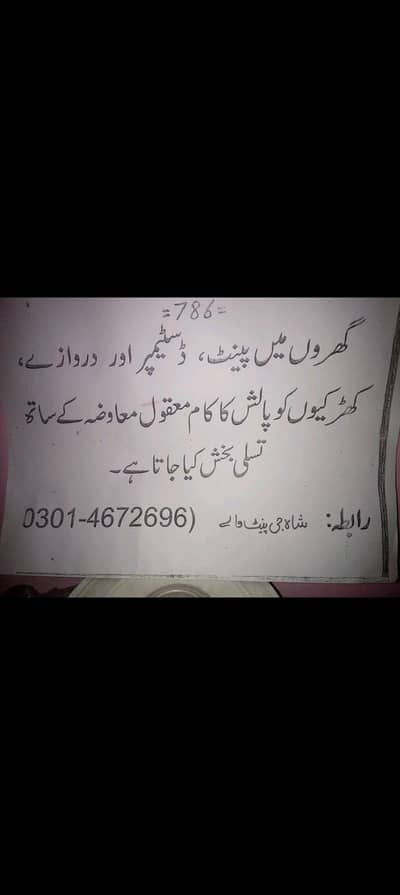 =786=
گھروں میں پینٹ، ڈسٹیمپر اور دروازے،
کھڑکیوں کو پالش کا کام معقول معاوضہ کے ساتھ
تسلی بخش کیا جاتا ہے۔
رابطہ: شاہ جی پینٹ والے (0301-4672696